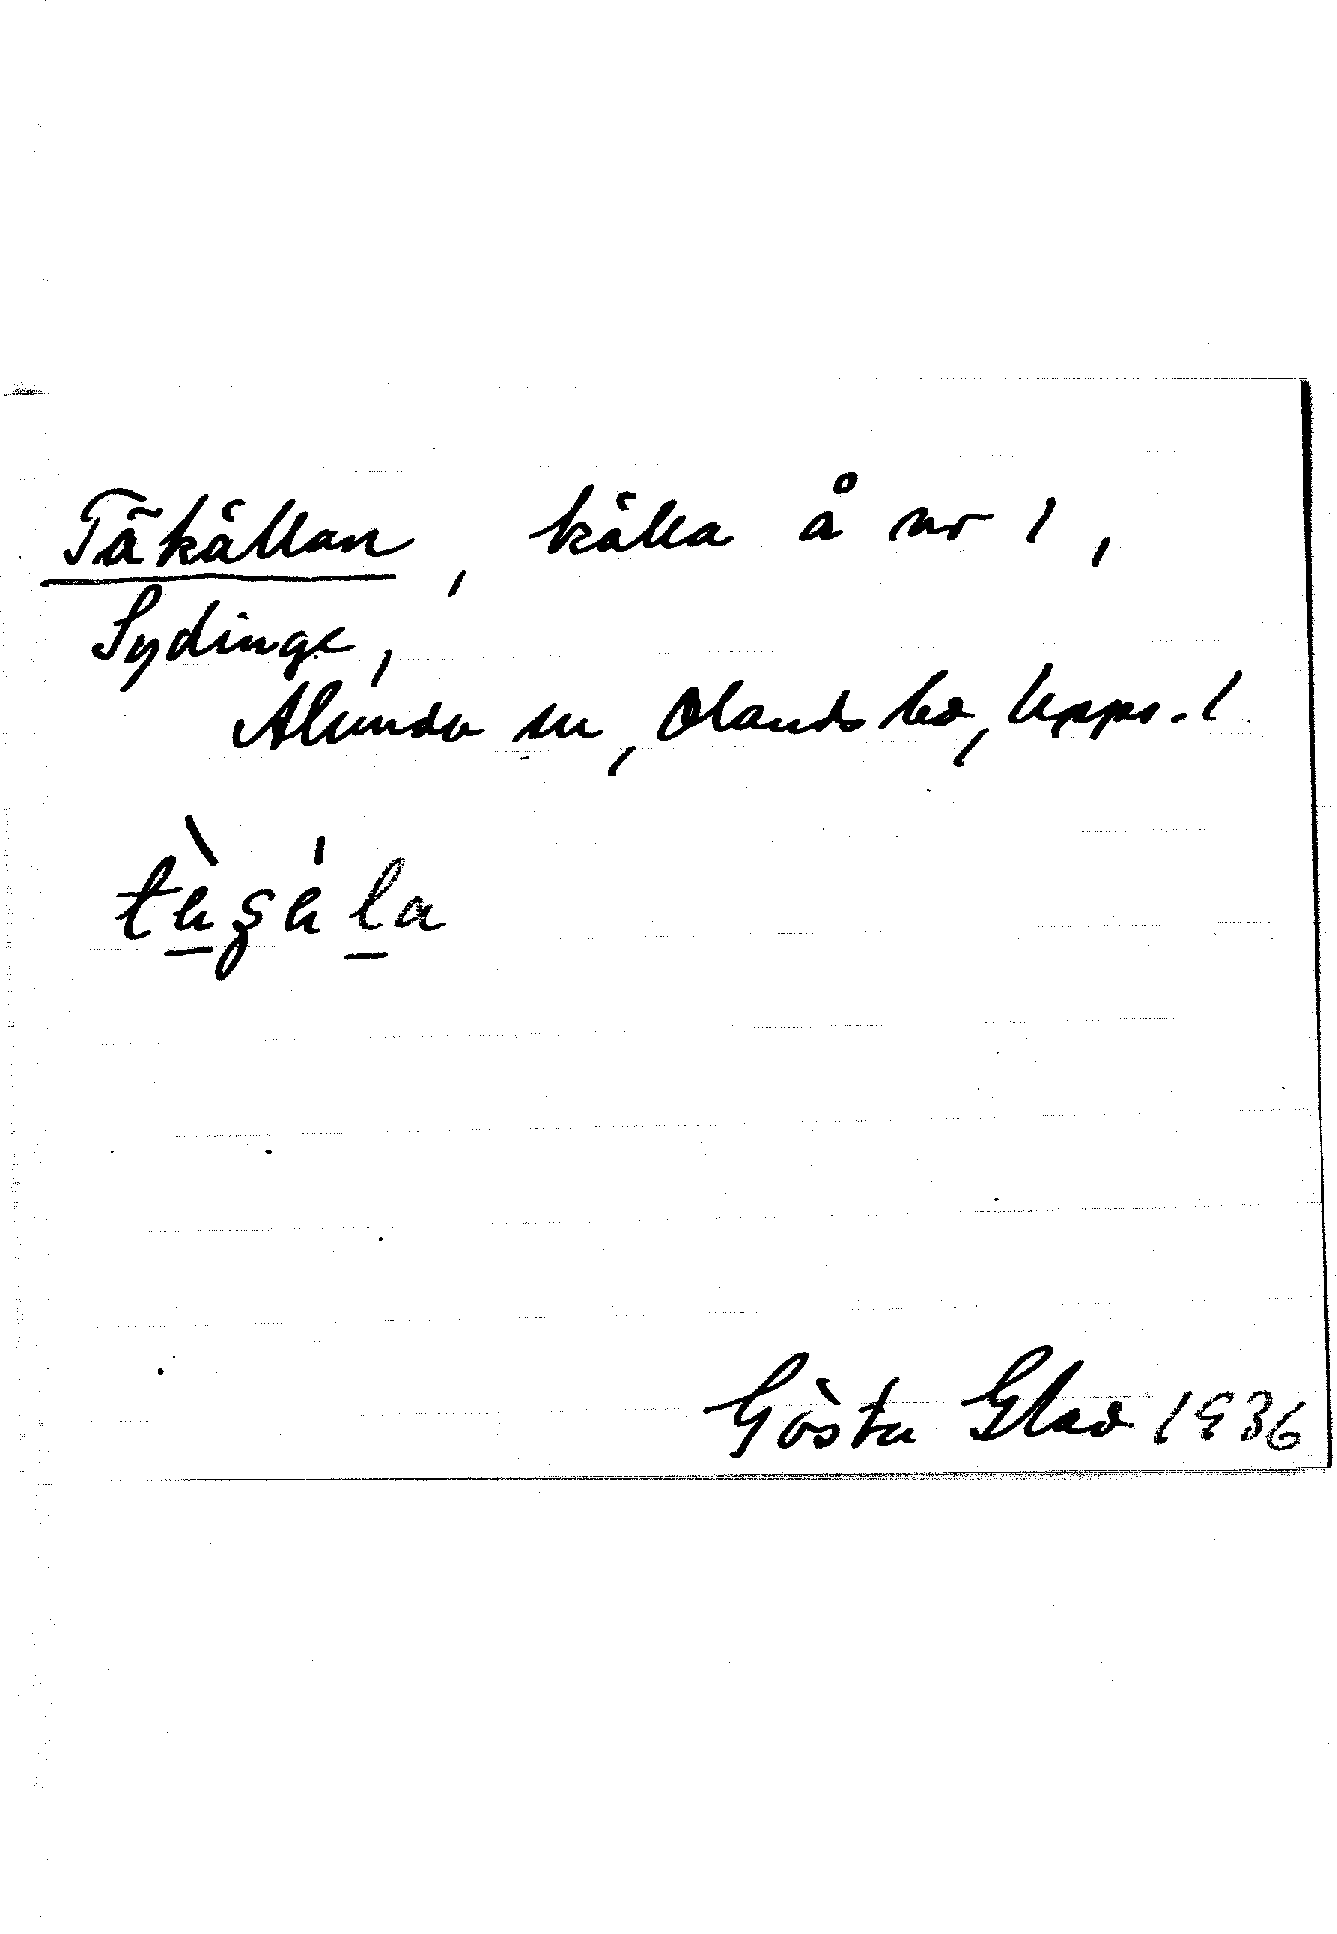 Täkällan, källa å nr 1,
Sydinge,
Alunda sn, Olands hd, Upps. l
Gösta Glad 1936